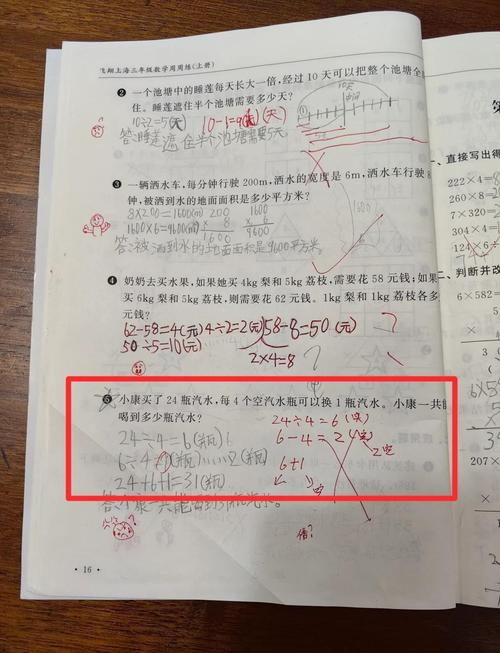 飞翔上海三年级数学周周练(上册)
2 一个池塘中的睡莲每天长大一倍，经过 10 天可以把整个池塘全
住。睡莲遮住半个池塘需要多少天？
10÷2=5(天) 10-1=9(天)
答:睡莲遮住半个池塘需要5天。
10天
5天
3 一辆洒水车，每分钟行驶 200m，洒水的宽度是 6m，洒水车行驶 8
钟，被洒到水的地面面积是多少平方米？
8×200=1600(m) 200 1600
1600×6=9600(m) × 8 × 6
1600 9600
答:被洒到水的地面面积是9600平方米。
4 奶奶去买水果，如果她买 4kg 梨和 5kg 荔枝，需要花 58 元钱；如果
买 6kg 梨和 5kg 荔枝，则需要花 62 元钱。1kg 梨和 1kg 荔枝各多
元钱？
62-58=4(元) 4÷2=2(元) 58-8=50(元)
50÷5=10(元)
2×4=8
5 小康买了 24 瓶汽水，每 4 个空汽水瓶可以换 1 瓶汽水。小康一共能
喝到多少瓶汽水？
24÷4=6(瓶) 24÷4=6(空)
6÷4=1(瓶)……2(瓶) 6-4=2(空)
2空
24+6+1=31(瓶) 6+1
答:小康一共能喝到31瓶汽水。
借?
· 16 ·
一、直接写出得
222×4=
260×8=
7×320=
304×4=
124×6=
二、判断并改
6×582=
207×